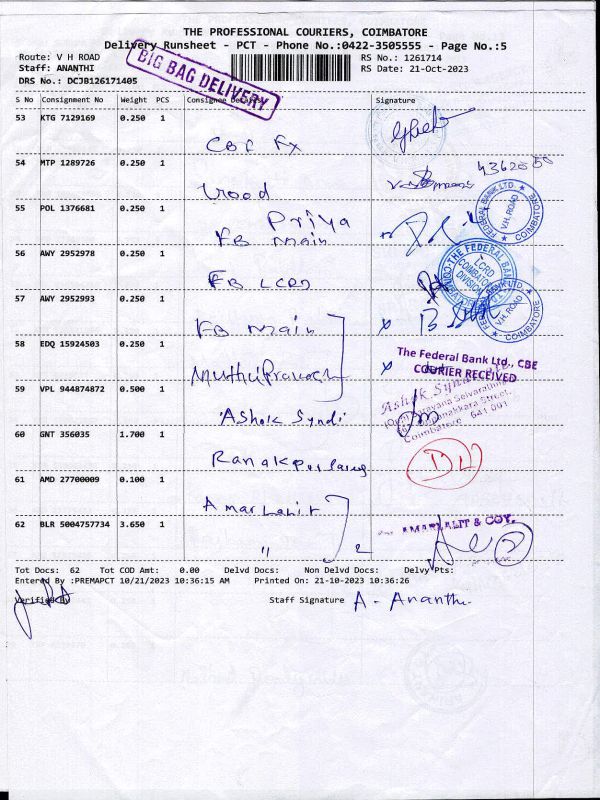 THE PROFESSIONAL COURIERS, COIMBATORE
Delivery Runsheet - PCT - Phone No.:0422-3505555 - Page No.:5
Route: V H ROAD RS No.: 1261714
Staff: ANANTHI RS Date: 21-Oct-2023
DRS No.: DCJB126171405
BIG BAG DELIVERY
S No Consignment No Weight PCS Consignee Details Signature
53 KTG 7129169 0.250 1
CBE Fx
54 MTP 1289726 0.250 1
4362050
55 POL 1376681 0.250 1
Priya
FB main
FEDERAL BANK LTD. V.H. ROAD COIMBATORE
56 AWY 2952978 0.250 1
FB LCRD
THE FEDERAL BANK LCRD COIMBATORE DIVISION
57 AWY 2952993 0.250 1
FB main
FEDERAL BANK LTD. V.H. ROAD COIMBATORE
58 EDQ 15924503 0.250 1
MuthuPrakash
The Federal Bank Ltd., CBE
COURIER RECEIVED
59 VPL 944874872 0.500 1
Ashok Syndi
Ashok Syndicate
Coimbatore 641 001
60 GNT 356035 1.700 1
Ranakpur
61 AMD 27700009 0.100 1
Amar Lalit
62 BLR 5004757734 3.650 1
" 2
AMARLALIT & COY.
2
Tot Docs: 62 Tot COD Amt: 0.00 Delvd Docs: Non Delvd Docs: Delvy Pts:
Entered By :PREMAPCT 10/21/2023 10:36:15 AM Printed On: 21-10-2023 10:36:26
Verified By Staff Signature A. Ananthi